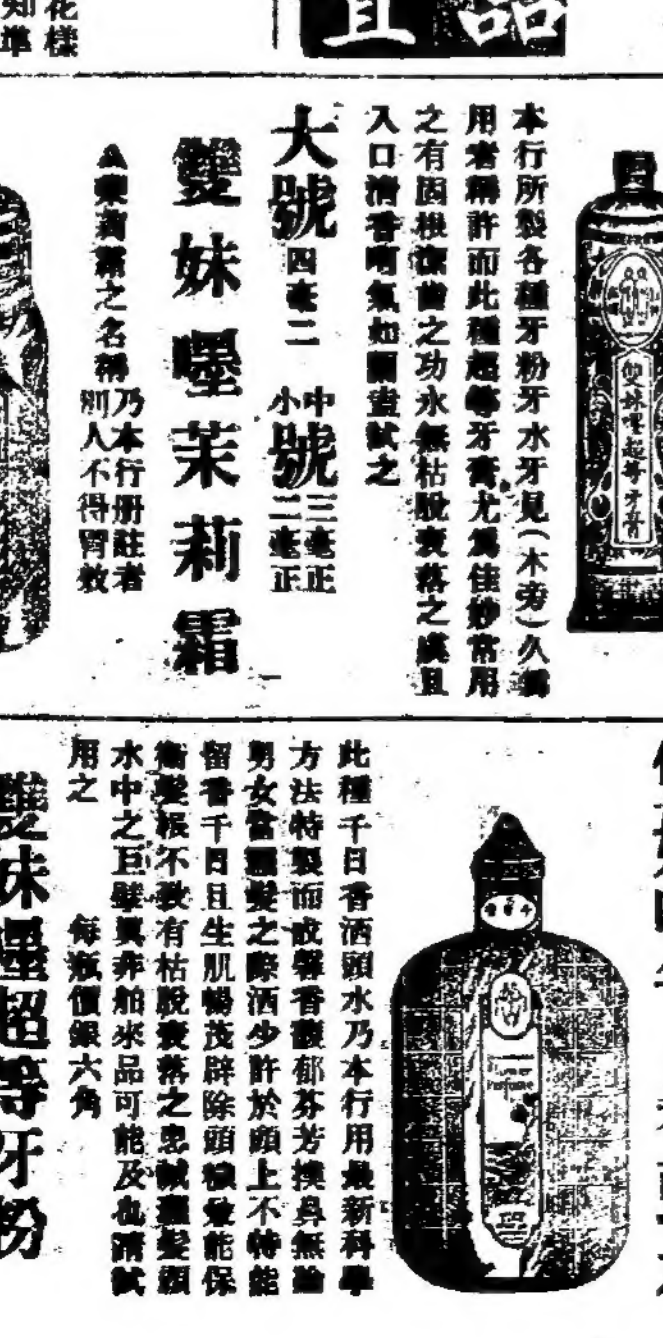 花樣
知準
品
宜
本行所製各種牙粉牙水牙見(木旁)久蒙
用者稱許而此種超等牙膏尤爲佳妙常用
之有固根潔齒之功永無枯脫衰落之虞且
入口清香呵氣如蘭請試之
大號四毫二
中號三毫正
小號二毫正
雙妹嚜茉莉霜
茉莉霜之名稱乃本行册註者
別人不得冒效
雙妹嚜超等牙膏
此種千日香洒頭水乃本行用最新科學
方法特製而成馨香馥郁芬芳撲鼻無論
男女當理髮之際洒少許於頭上不特能
留香千日且生肌暢茂辟除頭積並能保
衞髮根不致有枯脫衰落之患誠理髮頭
水中之巨擘眞非舶來品可能及也請試
用之
每瓶價銀六角
Flower
Perfume
雙妹嚜超等牙粉